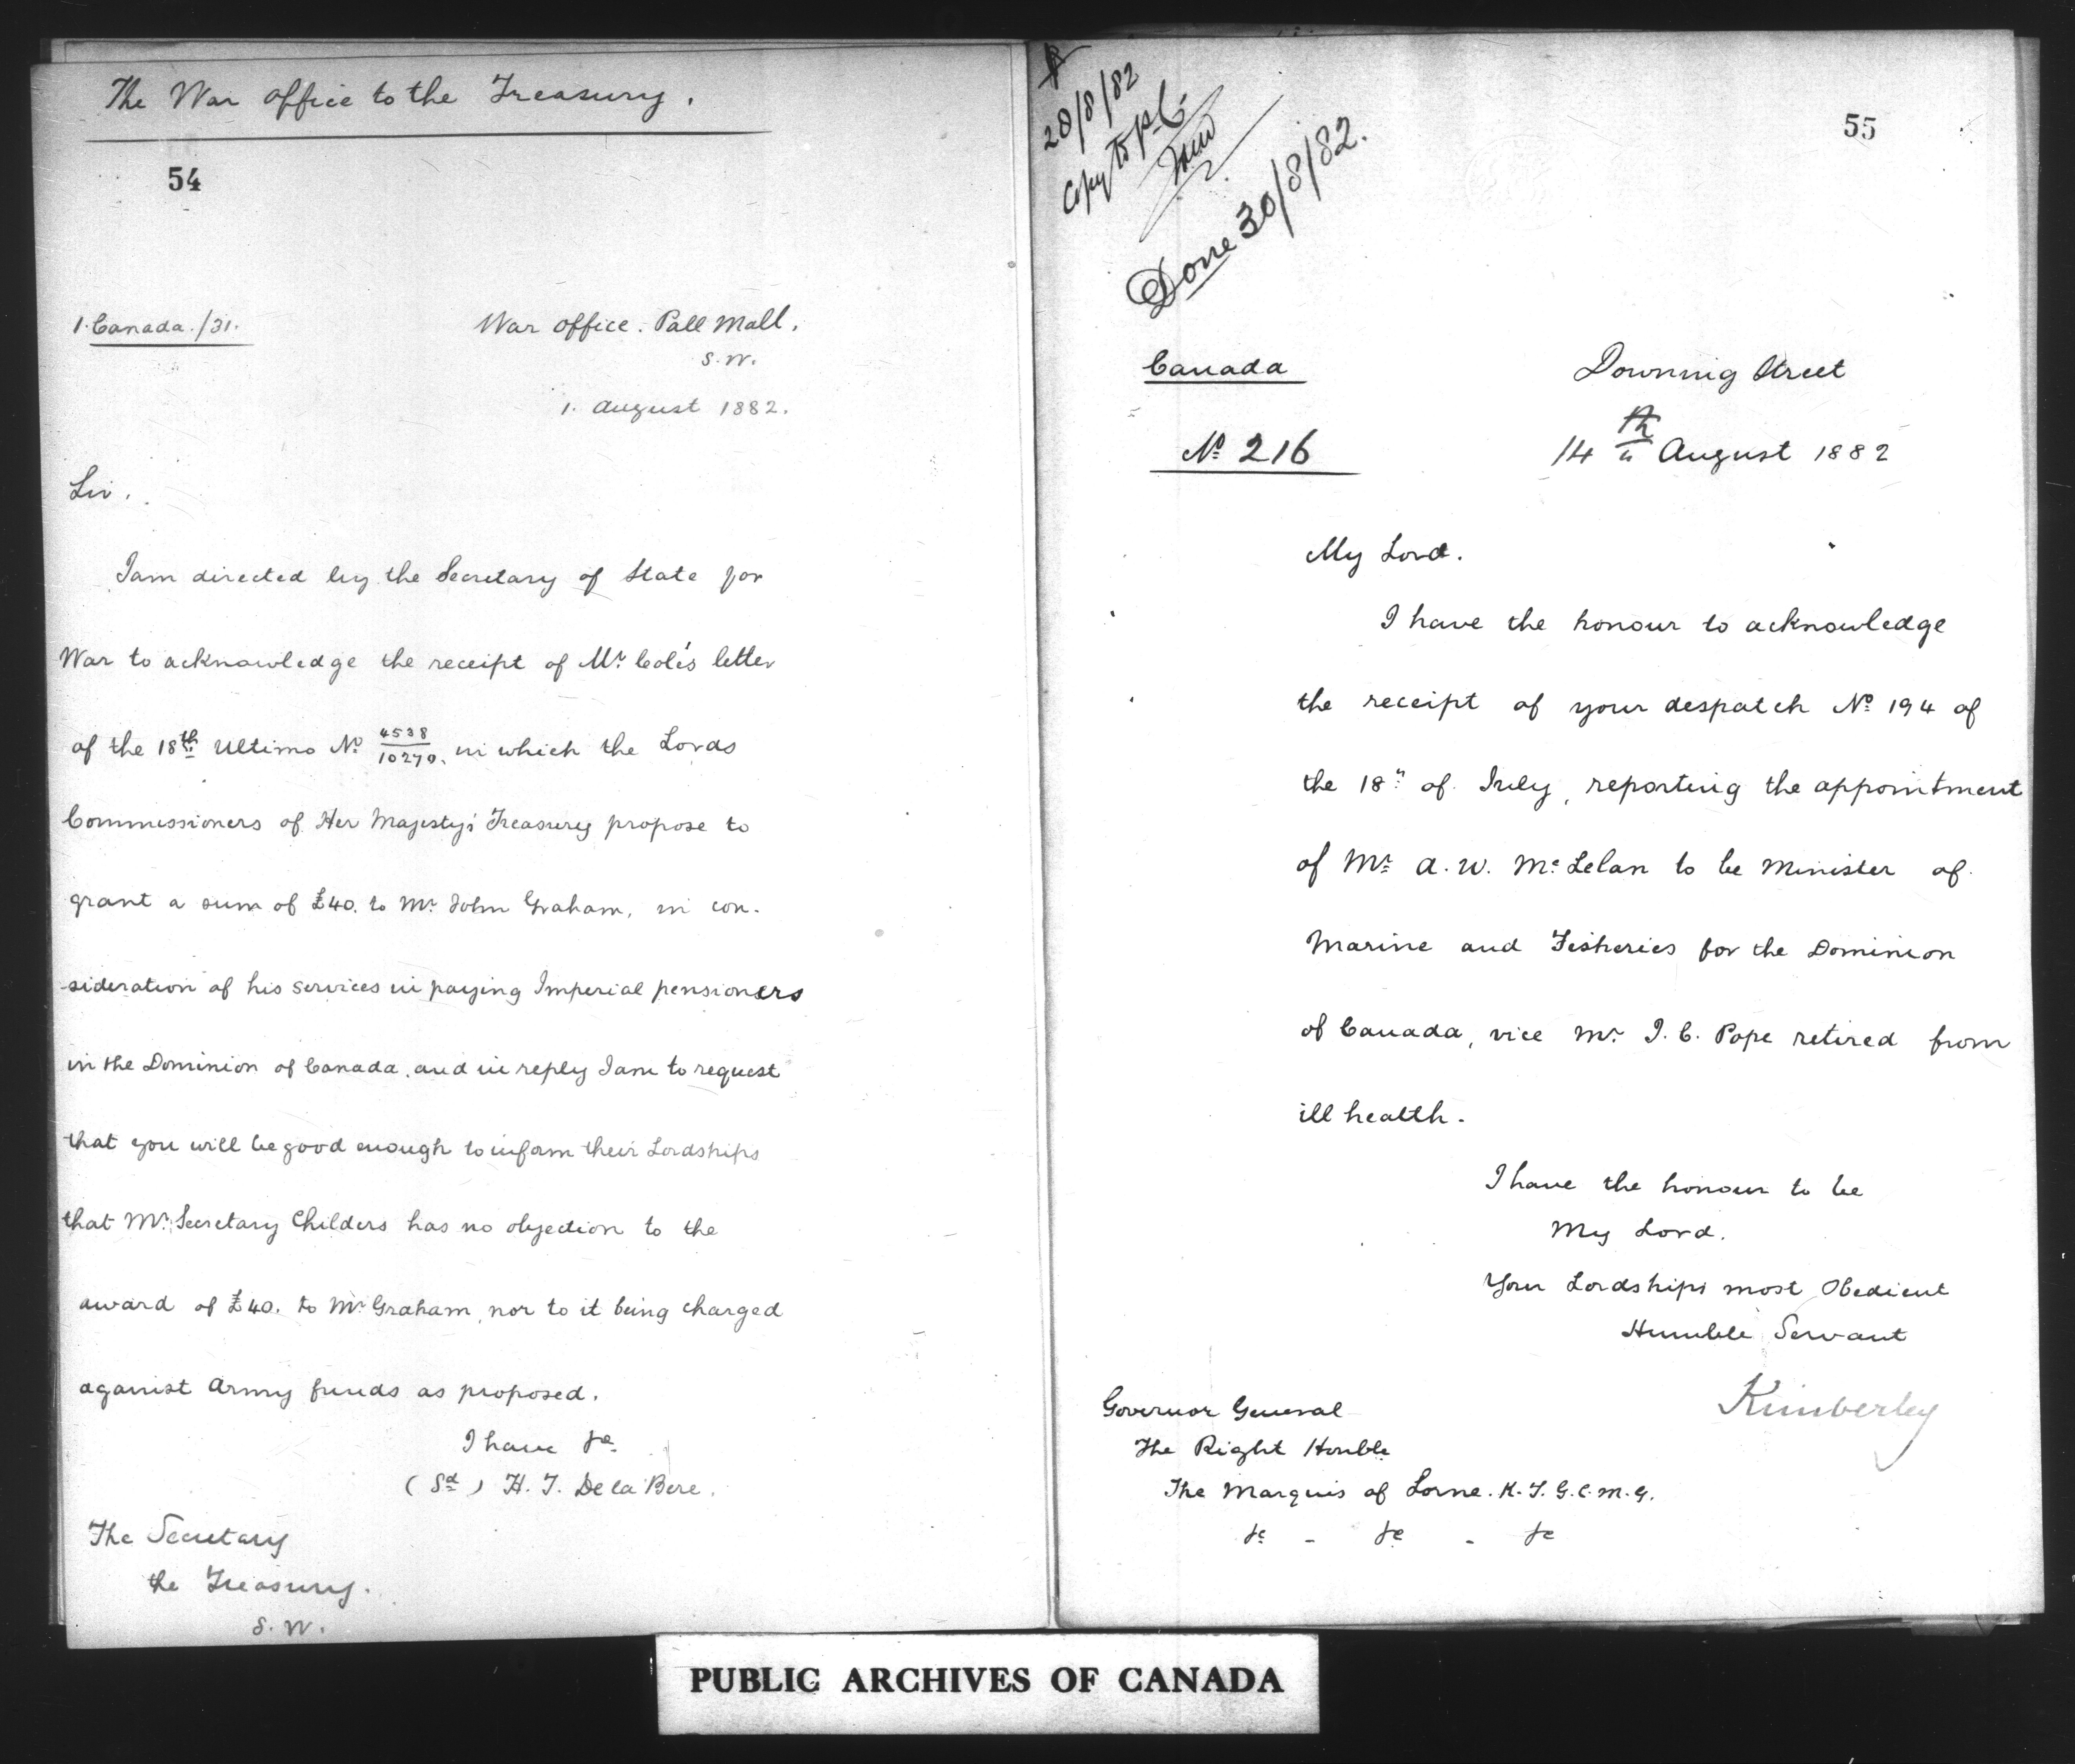 The War Office to the Treasury.
54
1. Canada./31.
War Office. Pall Mall.
S.W.
1. August 1882.
Sir.
I am directed by the Secretary of State for
War to acknowledge the receipt of Mr. Cole's letter
of the 18th Ultimo No. 4538/10270, in which the Lords
Commissioners of Her Majesty's Treasury propose to
grant a sum of £40. to Mr. John Graham, in con-
-sideration of his services in paying Imperial pensioners
in the Dominion of Canada. and in reply I am to request
that you will be good enough to inform their Lordships
that Mr. Secretary Childers has no objection to the
award of £40. to Mr Graham, nor to it being charged
against Army funds as proposed.
I have &c.
(Sd) H. T. De la Bere.
The Secretary
the Treasury.
S.W.
28/8/82
Copy to p.c.
Done 30/8/82.
55
Canada
Downing Street
No. 216
14th August 1882
My Lord.
I have the honour to acknowledge
the receipt of your despatch No. 194 of
the 18" of July, reporting the appointment
of Mr. A. W. McLelan to be Minister of
Marine and Fisheries for the Dominion
of Canada, vice Mr. J. C. Pope retired from
ill health.
I have the honour to be
My Lord.
Your Lordships most Obedient
Humble Servant
Kimberley
Governor General
The Right Honble
The Marquis of Lorne. K.T. G.C.M.G.
&c - &c - &c
PUBLIC ARCHIVES OF CANADA